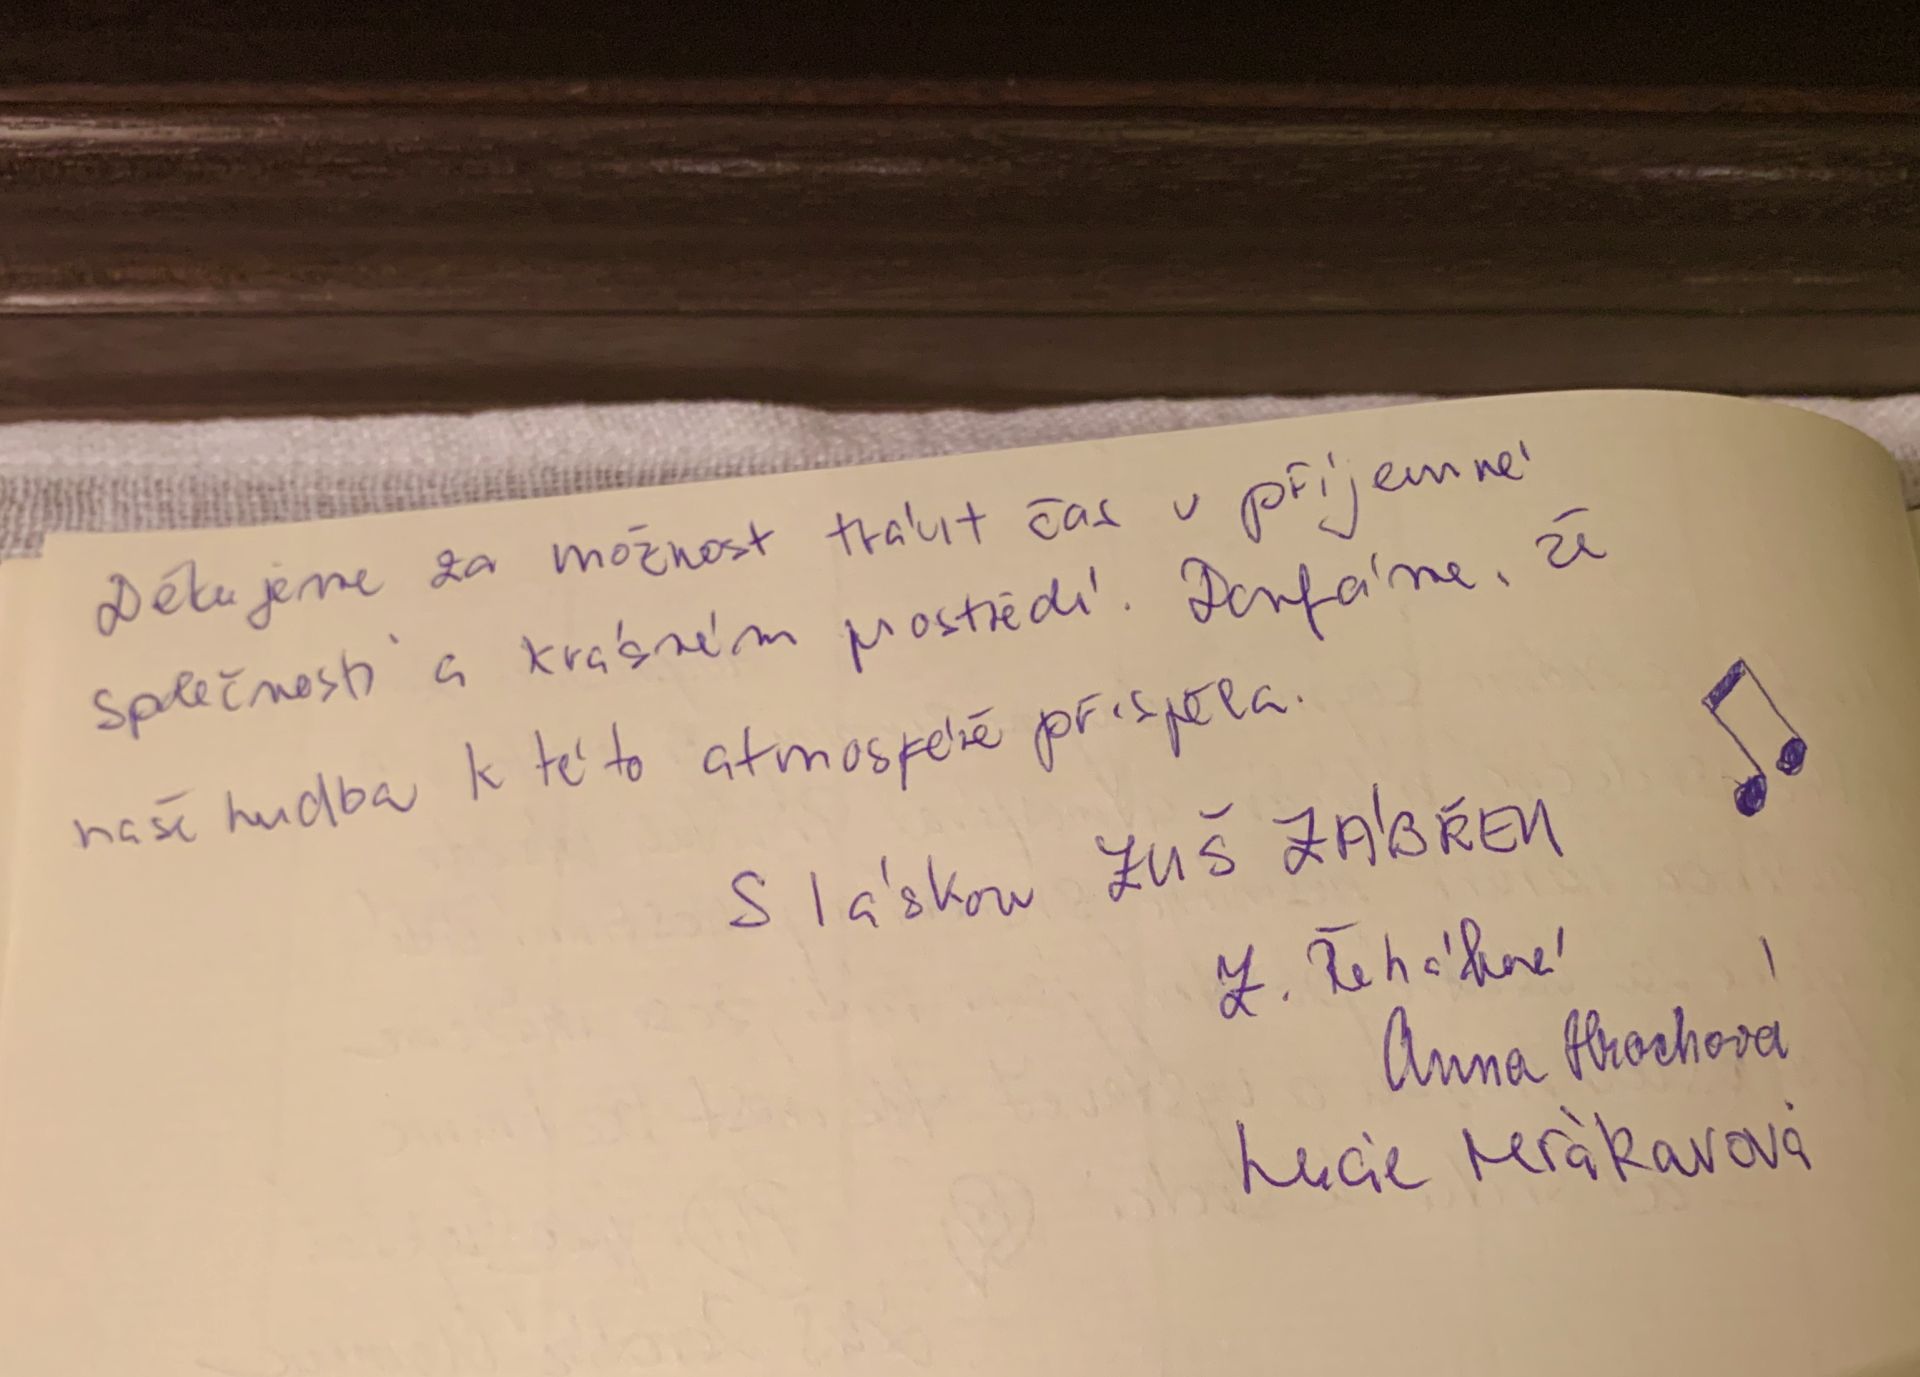 Děkujeme za možnost trávit čas v příjemné
společnosti a krásném prostředí. Doufáme, že
naše hudba k této atmosféře přispěla.
S láskou ZUŠ ZÁBŘEH
Z. Řeháková
Anna Hrochová
Lucie